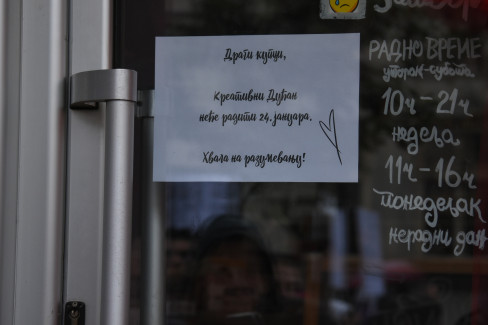 Драги купци,
Креативни Дућан
неће радити 24. јануара.
Хвала на разумевању!
РАДНО ВРЕМЕ
уторак-субота
10ч-21ч
недеља
11ч-16ч
понедељак
нерадни дан